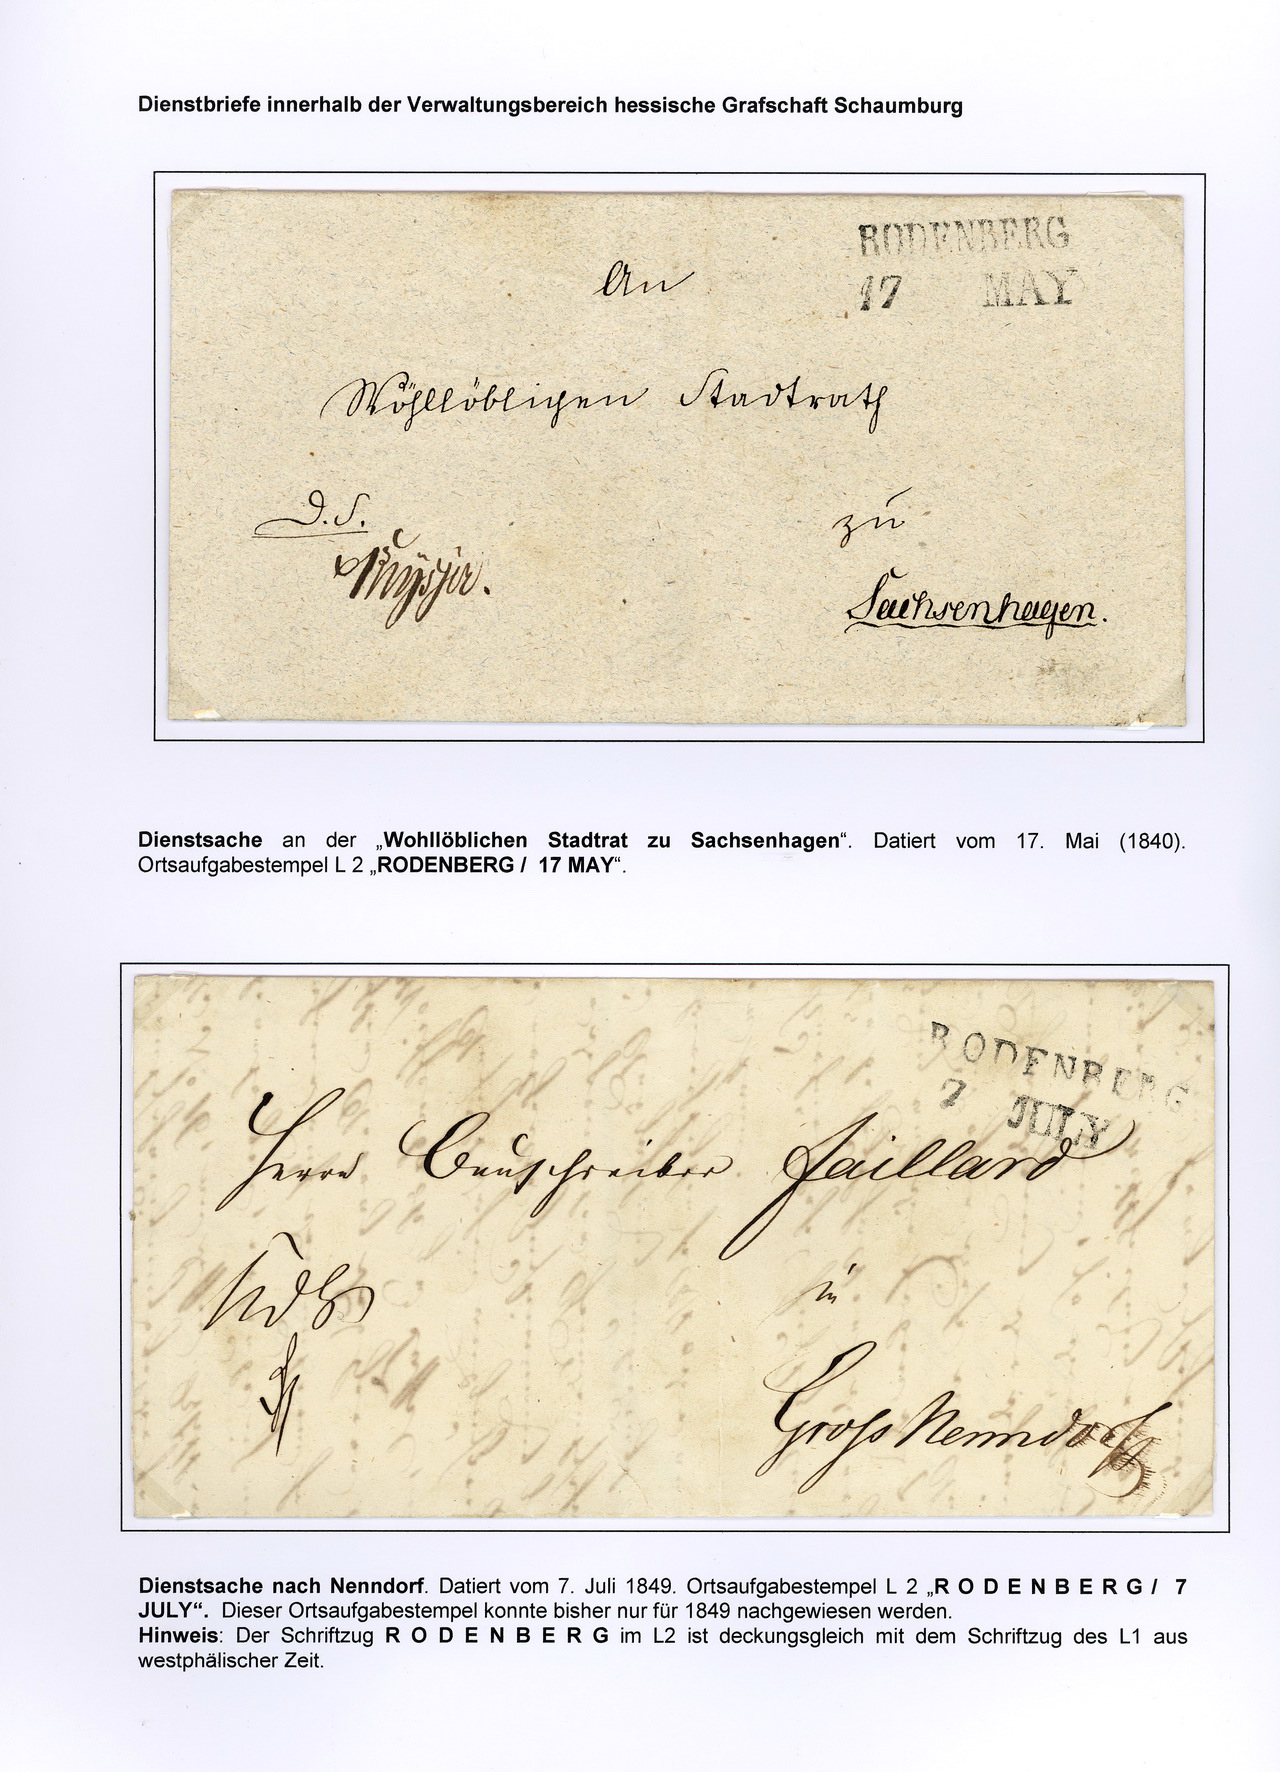 Dienstbriefe innerhalb der Verwaltungsbereich hessische Grafschaft Schaumburg
RODENBERG
17 MAY
An
Wohllöblichen Stadtrath
D.S.
zu
Sachsenhagen.
Dienstsache an der „Wohllöblichen Stadtrat zu Sachsenhagen“. Datiert vom 17. Mai (1840).
Ortsaufgabestempel L 2 „RODENBERG / 17 MAY“.
RODENBERG
7 JULY
Herrn Bauschreiber Jaillard
in
Gross Nenndorf
Dienstsache nach Nenndorf. Datiert vom 7. Juli 1849. Ortsaufgabestempel L 2 „R O D E N B E R G / 7
JULY“. Dieser Ortsaufgabestempel konnte bisher nur für 1849 nachgewiesen werden.
Hinweis: Der Schriftzug R O D E N B E R G im L2 ist deckungsgleich mit dem Schriftzug des L1 aus
westphälischer Zeit.